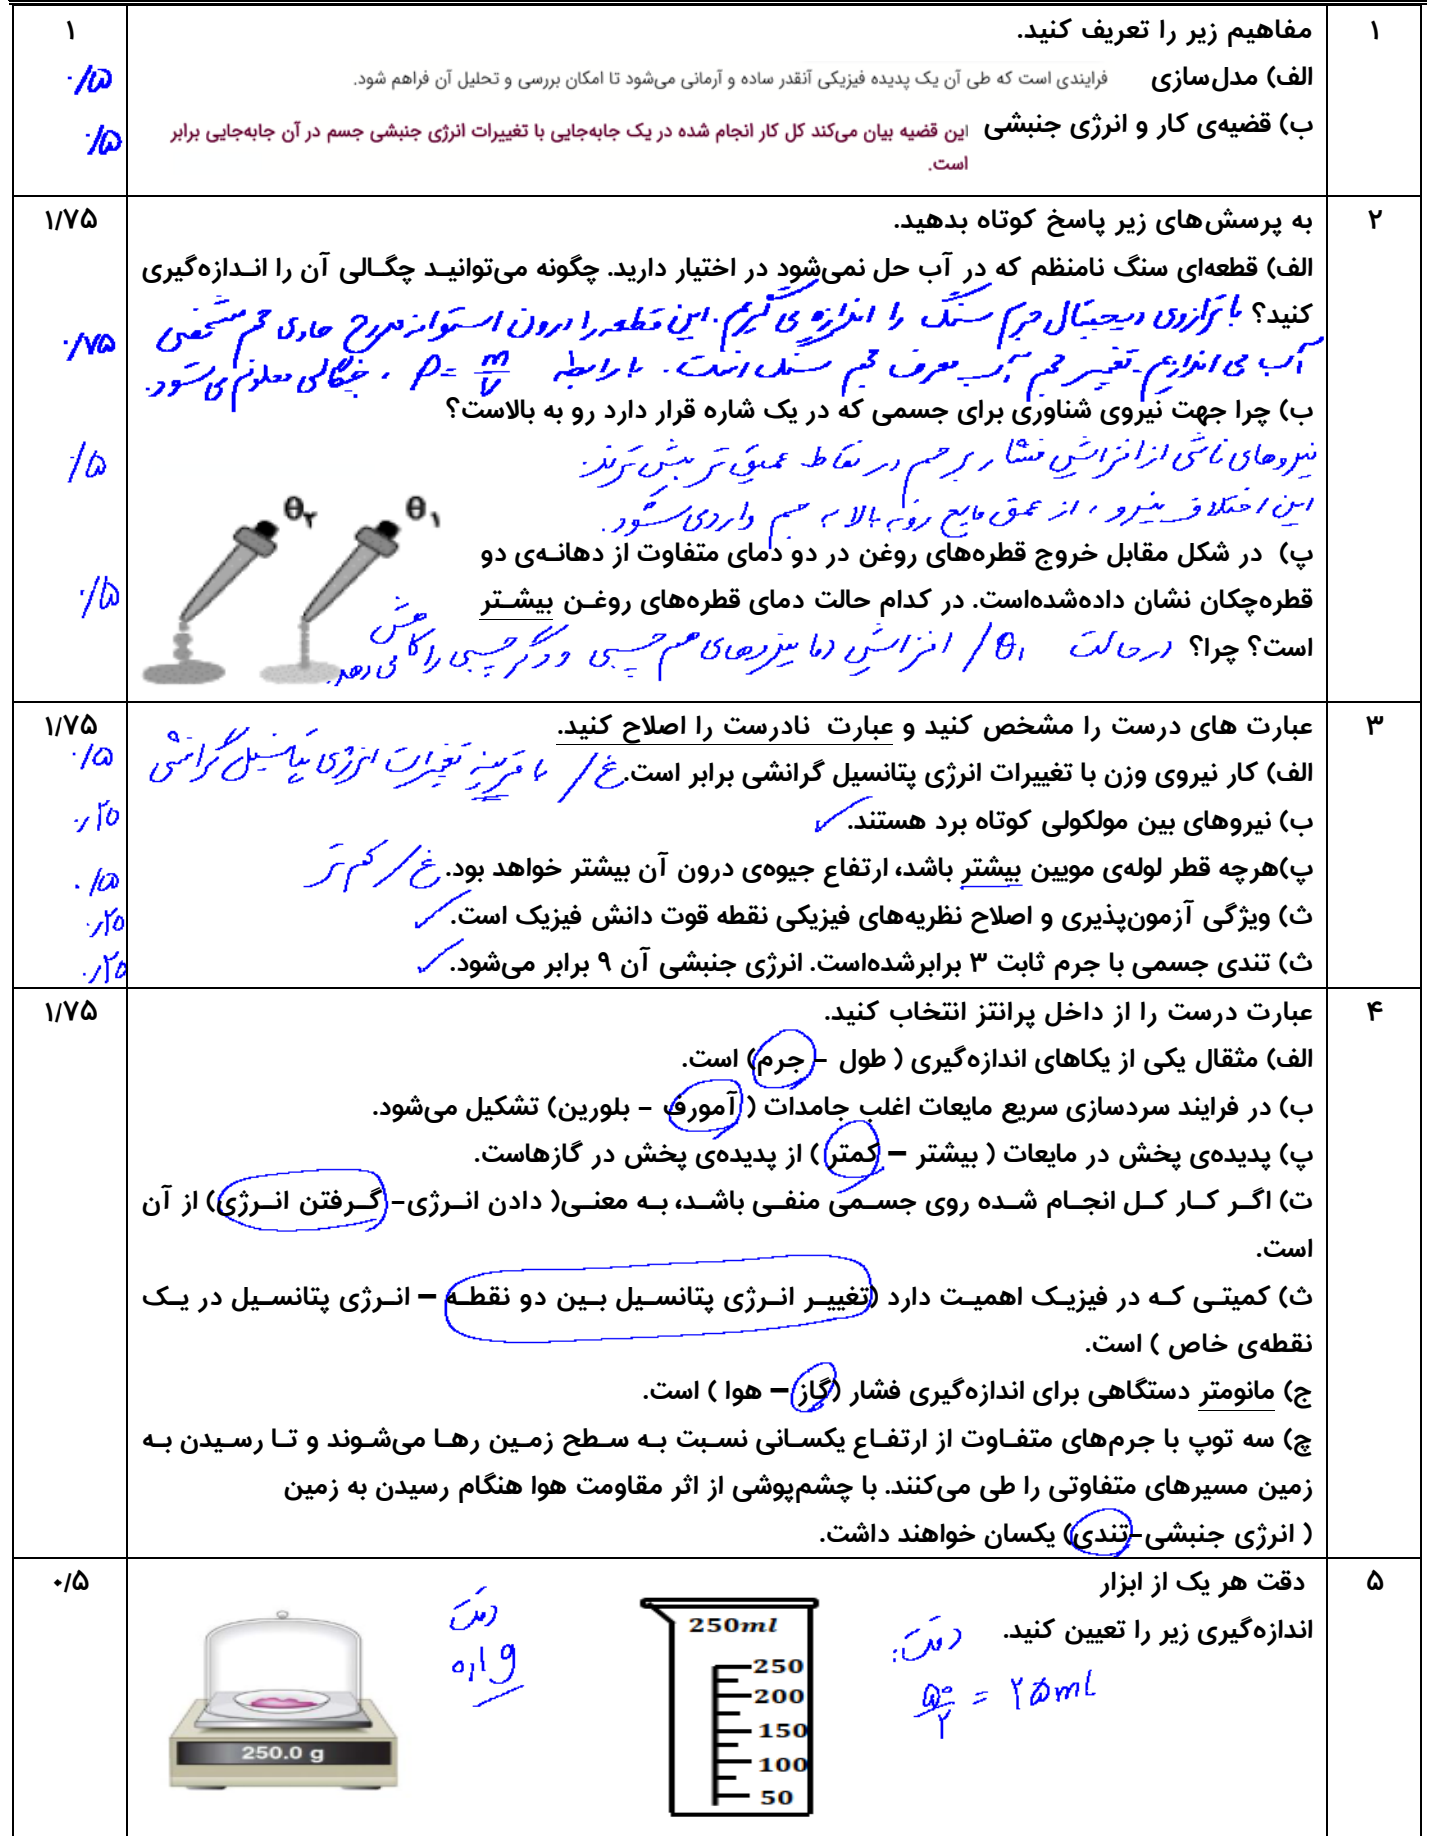 ۱ مفاهیم زیر را تعریف کنید. ۱
الف) مدل‌سازی فرایندی است که طی آن یک پدیده فیزیکی آنقدر ساده و آرمانی می‌شود تا امکان بررسی و تحلیل آن فراهم شود. ۰/۵
ب) قضیه‌ی کار و انرژی جنبشی این قضیه بیان می‌کند کل کار انجام شده در یک جابه‌جایی با تغییرات انرژی جنبشی جسم در آن جابه‌جایی برابر ۰/۵
است.
۲ به پرسش‌های زیر پاسخ کوتاه بدهید. ۱/۷۵
الف) قطعه‌ای سنگ نامنظم که در آب حل نمی‌شود در اختیار دارید. چگونه می‌توانید چگالی آن را اندازه‌گیری
کنید؟ با ترازوی دیجیتال جرم سنگ را اندازه می گیریم. این قطعه را درون استوانه مدرج حاوی حجم مشخصی ۰/۷۵
آب می اندازیم. تغییر حجم آب معرف حجم سنگ است. با رابطه ρ = m/V ، چگالی معلوم می شود.
ب) چرا جهت نیروی شناوری برای جسمی که در یک شاره قرار دارد رو به بالاست؟
نیروهای ناشی از افزایش فشار بر جسم در نقاط عمیق تر بیش ترند. ۰/۵
این اختلاف نیرو ، از عمق مایع رو به بالا به جسم وارد می شود.
θ۲ θ۱
پ) در شکل مقابل خروج قطره‌های روغن در دو دمای متفاوت از دهانه‌ی دو
قطره‌چکان نشان داده‌شده‌است. در کدام حالت دمای قطره‌های روغن بیشتر ۰/۵
است؟ چرا؟ در حالت θ۱ / افزایش دما نیروهای هم چسبی و دگر چسبی را کاهش می دهد.
۳ عبارت های درست را مشخص کنید و عبارت نادرست را اصلاح کنید. ۱/۷۵
الف) کار نیروی وزن با تغییرات انرژی پتانسیل گرانشی برابر است. غ / با قرینه تغییرات انرژی پتانسیل گرانشی ۰/۵
ب) نیروهای بین مولکولی کوتاه برد هستند. ✓ ۰/۲۵
پ)هرچه قطر لوله‌ی مویین بیشتر باشد، ارتفاع جیوه‌ی درون آن بیشتر خواهد بود. غ / کم تر ۰/۵
ث) ویژگی آزمون‌پذیری و اصلاح نظریه‌های فیزیکی نقطه قوت دانش فیزیک است. ✓ ۰/۲۵
ث) تندی جسمی با جرم ثابت ۳ برابرشده‌است. انرژی جنبشی آن ۹ برابر می‌شود. ✓ ۰/۲۵
۴ عبارت درست را از داخل پرانتز انتخاب کنید. ۱/۷۵
الف) مثقال یکی از یکاهای اندازه‌گیری ( طول – جرم) است.
ب) در فرایند سردسازی سریع مایعات اغلب جامدات ( آمورف – بلورین) تشکیل می‌شود.
پ) پدیده‌ی پخش در مایعات ( بیشتر – کمتر ) از پدیده‌ی پخش در گازهاست.
ت) اگر کار کل انجام شده روی جسمی منفی باشد، به معنی( دادن انرژی- گرفتن انرژی) از آن
است.
ث) کمیتی که در فیزیک اهمیت دارد (تغییر انرژی پتانسیل بین دو نقطه – انرژی پتانسیل در یک
نقطه‌ی خاص ) است.
ج) مانومتر دستگاهی برای اندازه‌گیری فشار (گاز – هوا ) است.
چ) سه توپ با جرم‌های متفاوت از ارتفاع یکسانی نسبت به سطح زمین رها می‌شوند و تا رسیدن به
زمین مسیرهای متفاوتی را طی می‌کنند. با چشم‌پوشی از اثر مقاومت هوا هنگام رسیدن به زمین
( انرژی جنبشی-تندی) یکسان خواهند داشت.
۵ دقت هر یک از ابزار ۰/۵
اندازه‌گیری زیر را تعیین کنید.
دقت: ۵۰/۲ = ۲۵ mL
250ml
250
200
150
100
50
دقت
۰,۱ g
250.0 g